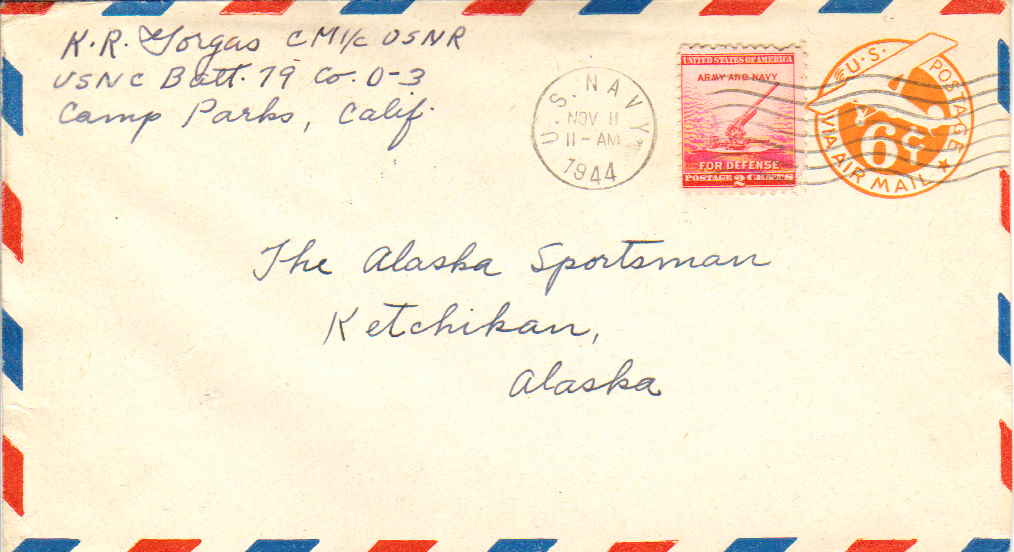 K. R. Gorgas CM1/c USNR
USNC Batt. 79 Co. D-3
Camp Parks, Calif.
U. S. NAVY
NOV 11
11-AM
1944
UNITED STATES OF AMERICA
ARMY AND NAVY
FOR DEFENSE
POSTAGE 2 CENTS
U.S. POSTAGE
6¢
VIA AIR MAIL
The Alaska Sportsman
Ketchikan,
Alaska